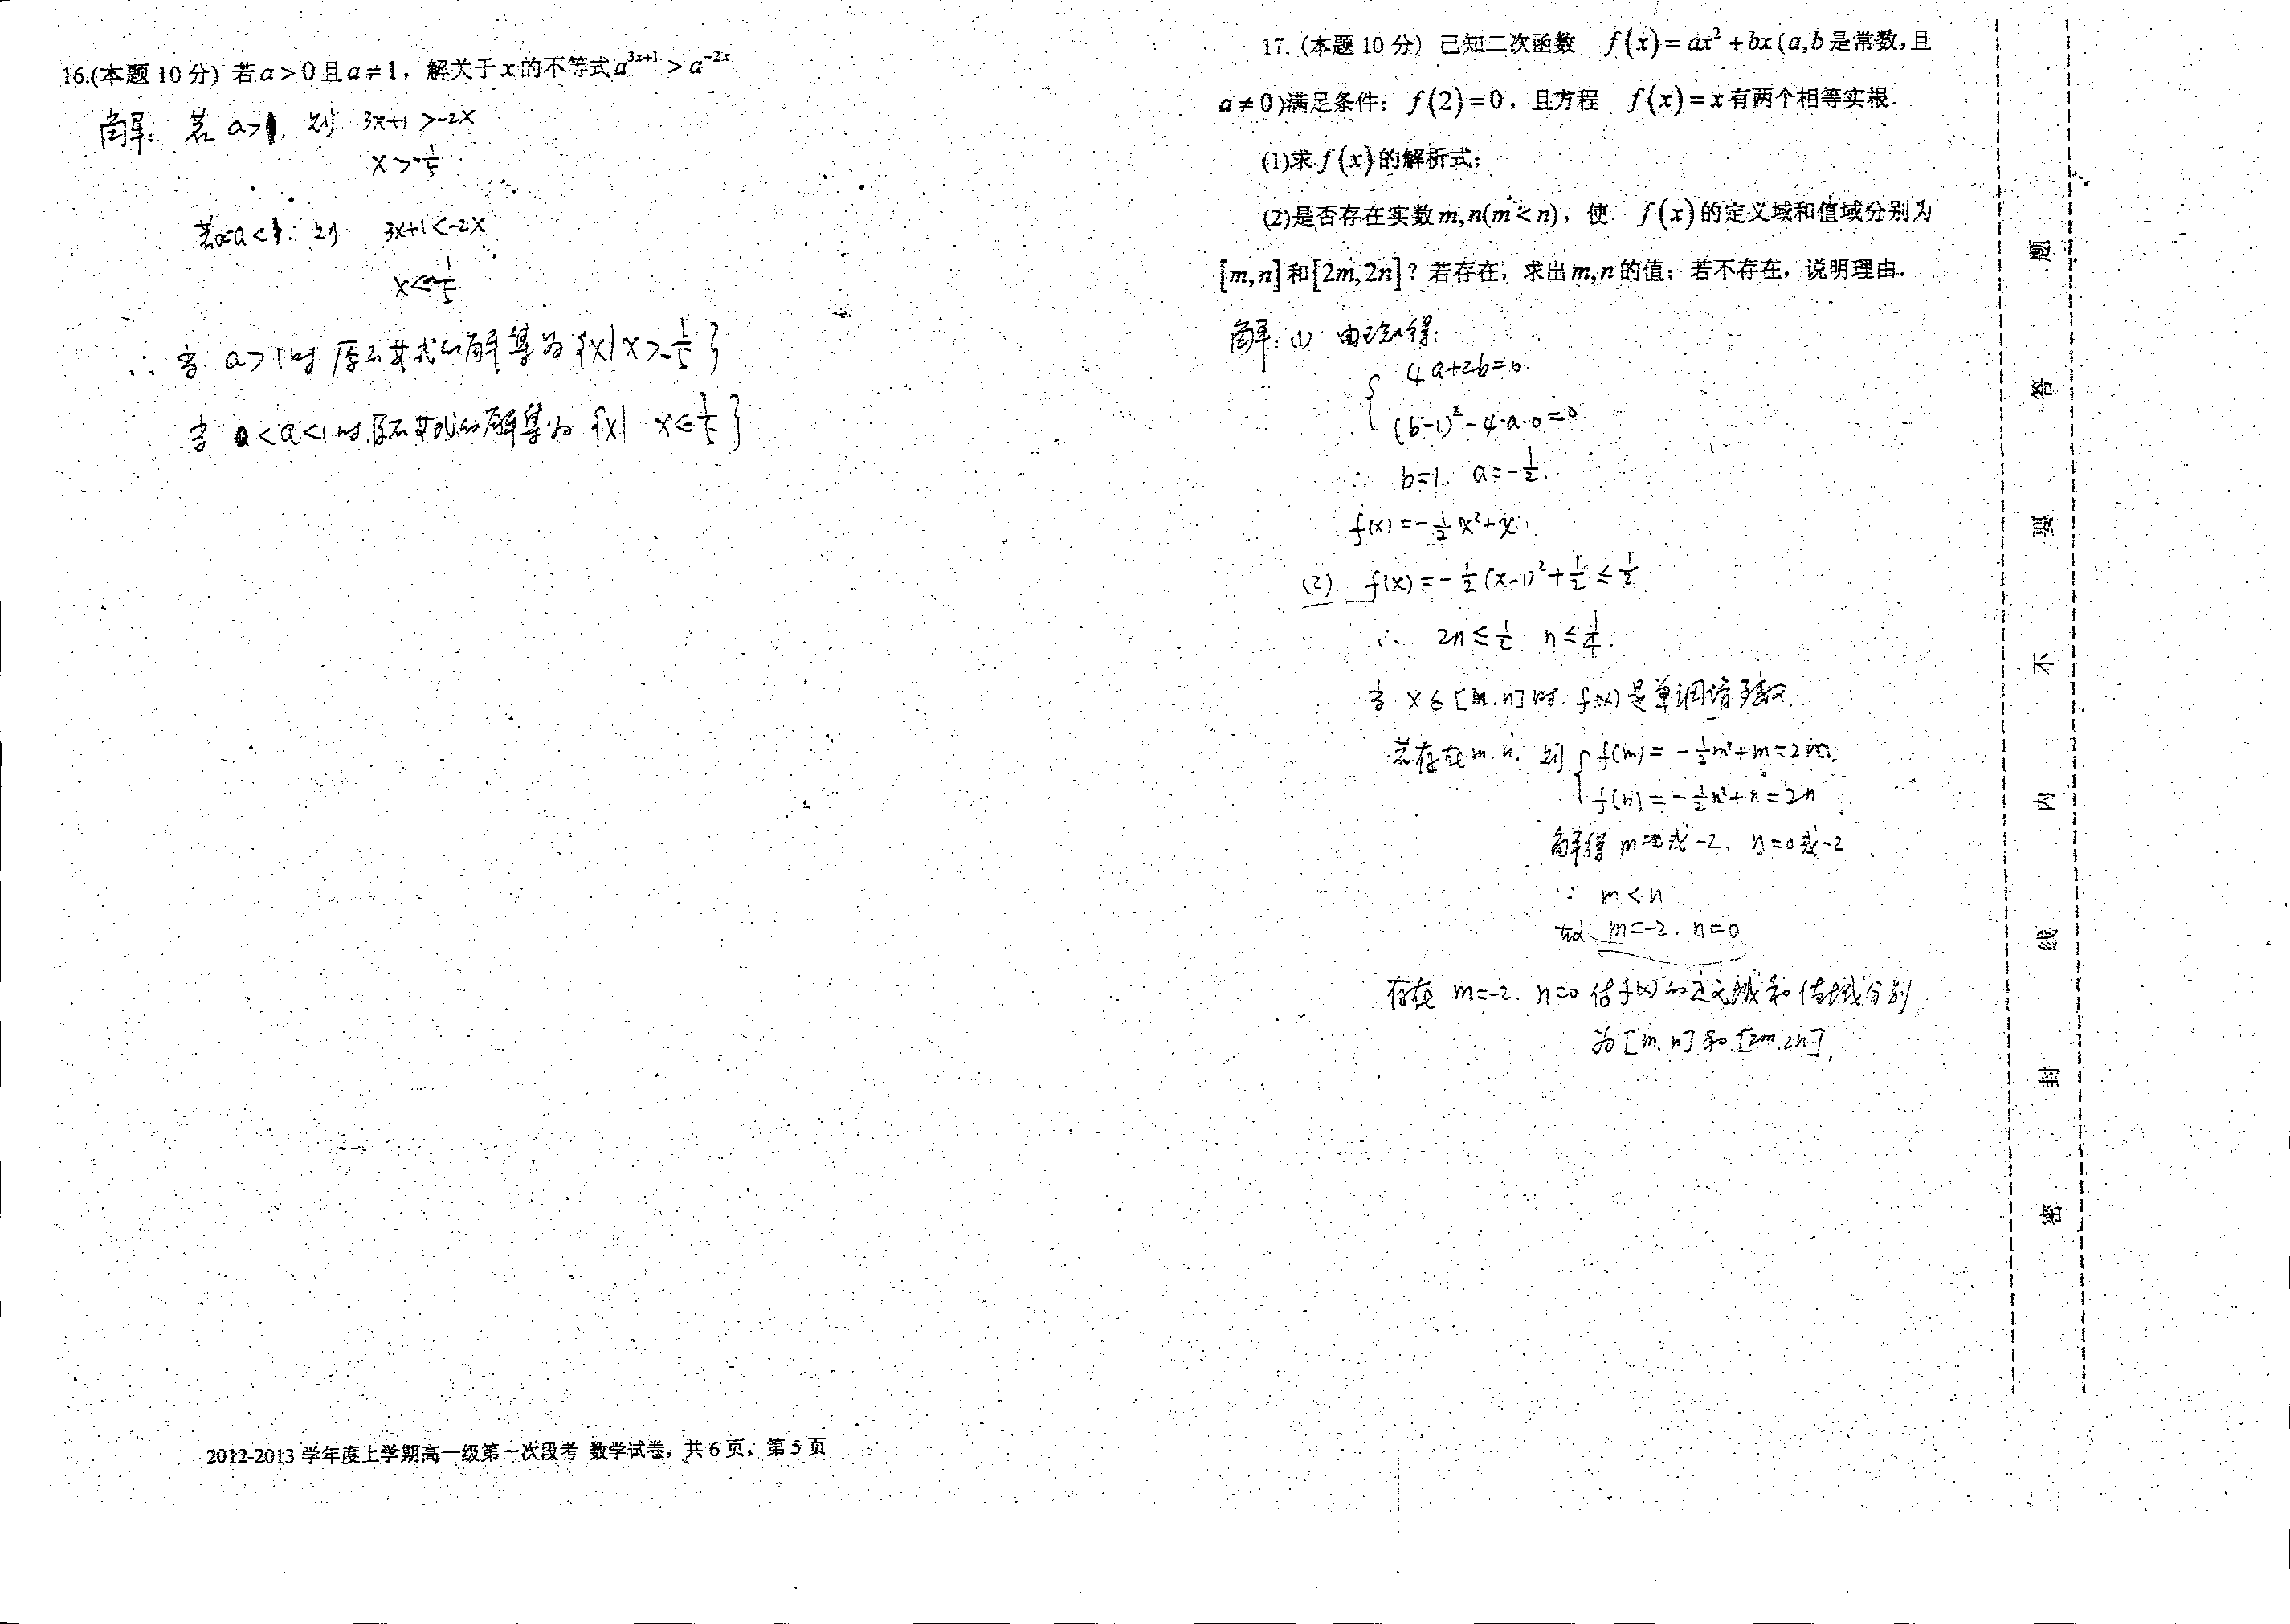 16.(本题 10 分) 若a>0且a≠1，解关于x的不等式a^{3x+1}>a^{-2x}
解: 若 a>1, 则 3x+1>-2x
x>-1/5
若0<a<1: 则 3x+1<-2x
x<-1/5
∴ 当 a>1时 原不等式的解集为 {x|x>-1/5}
当 0<a<1时,原不等式的解集为 {x| x<-1/5}
2012-2013 学年度上学期高一级第一次段考 数学试卷，共 6 页，第 5 页
17.（本题 10 分）已知二次函数 f(x)=ax²+bx(a,b是常数,且
a≠0)满足条件：f(2)=0，且方程 f(x)=x有两个相等实根.
(1)求f(x)的解析式；
(2)是否存在实数m,n(m<n)，使 f(x)的定义域和值域分别为
[m,n]和[2m,2n]？若存在，求出m,n的值；若不存在，说明理由.
解: (1) 由题知得:
{ 4a+2b=0
(b-1)²-4·a·0=0
∴ b=1. a=-1/2.
f(x)=-1/2x²+x
(2) f(x)=-1/2(x-1)²+1/2≤1/2
∴ 2n≤1/2 n≤1/4.
当 x∈[m.n]时. f(x)是单调增函数.
若存在m.n. 则 { f(m)=-1/2m²+m=2m
f(n)=-1/2n²+n=2n
解得 m=0或-2、n=0或-2
∵ m<n
故 m=-2. n=0
存在 m=-2. n=0 使f(x)的定义域和值域分别
为[m.n]和[2m.2n].
题
答
要
不
内
线
封
密